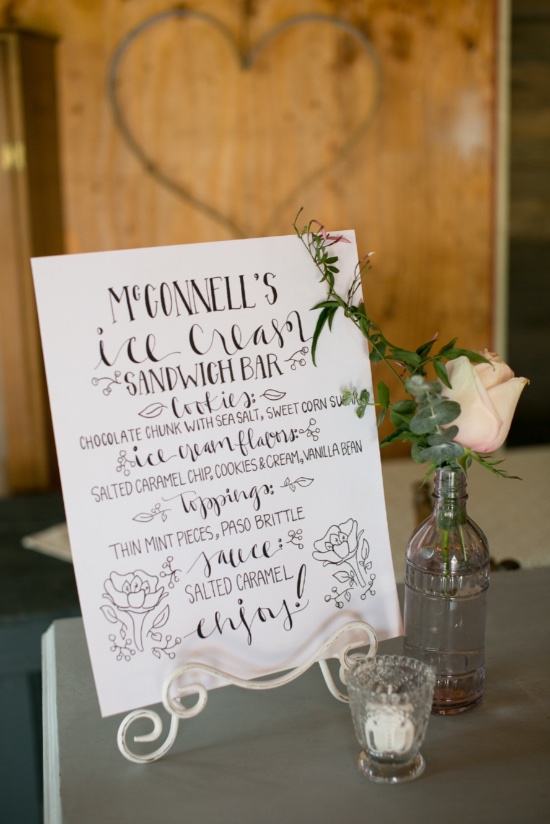 McCONNELL'S
ice cream
SANDWICH BAR
Cookies:
CHOCOLATE CHUNK WITH SEA SALT, SWEET CORN SUGAR
ice cream flavors:
SALTED CARAMEL CHIP, COOKIES & CREAM, VANILLA BEAN
Toppings:
THIN MINT PIECES, PASO BRITTLE
sauce:
SALTED CARAMEL
enjoy!